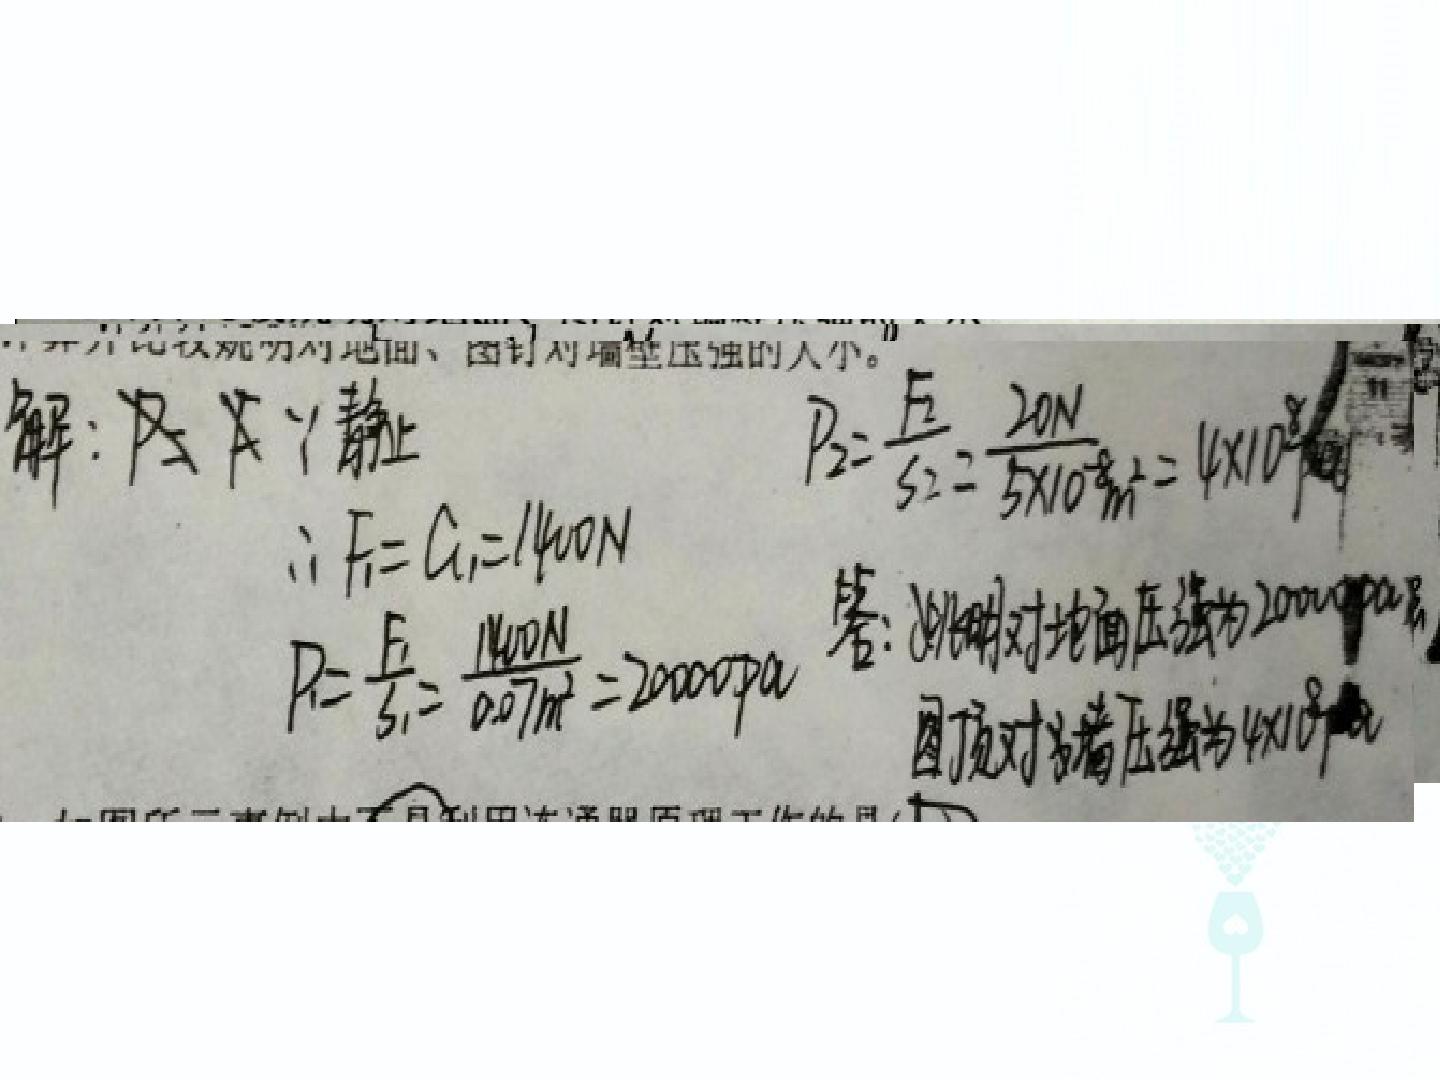 计算并比较姚明对地面、图钉对墙壁压强的大小。
解: ∵静止
∴F₁=G₁=1400N
P₁=F₁/S₁=1400N/0.07m²=20000pa
P₂=F₂/S₂=20N/5×10⁻⁸m²=4×10⁸pa
答:姚明对地面压强为20000pa
图顶对墙压强为4×10⁸pa
如图所示事例中不是利用连通器原理工作的是(